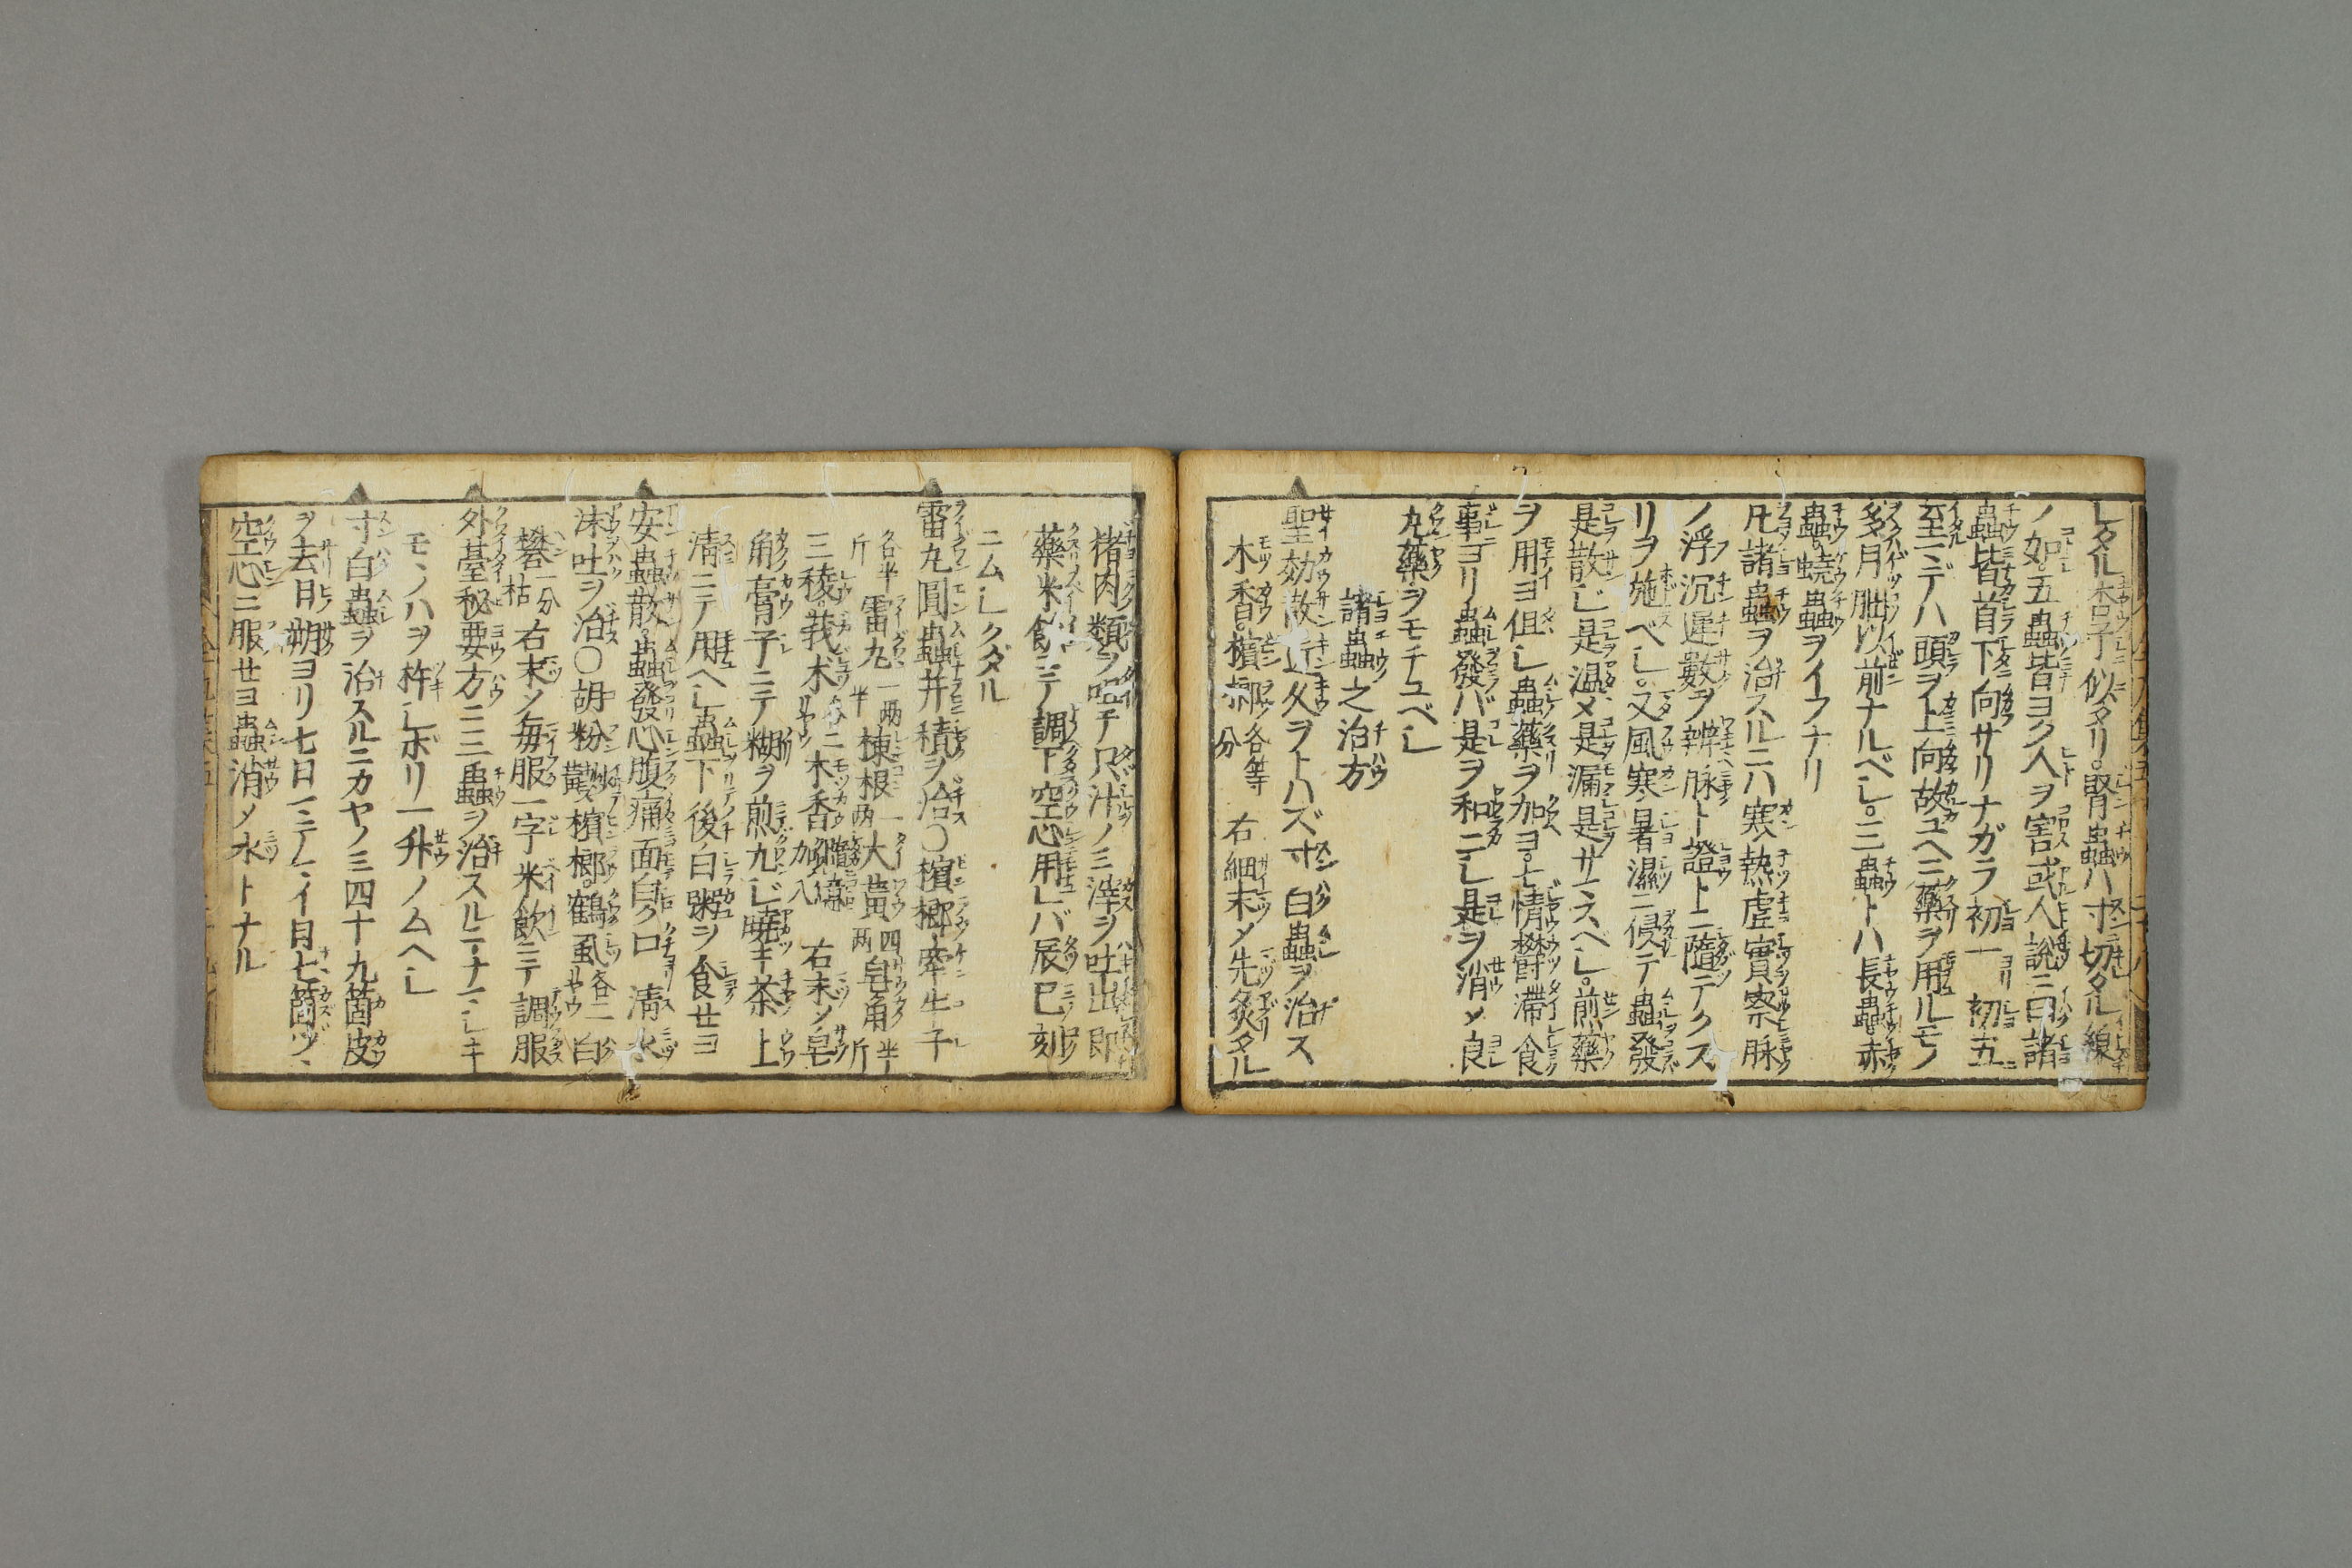 シタル杏子ニ似タリ。腎蟲ハ寸切タル線
ノ如。五蟲皆ヨク人ヲ害或人説ニ曰諸
蟲皆首下ニ向サリナガラ初一ヨリ初五ニ
至マデハ頭ヲ上ニ向故ユヘニ藥ヲ用ルモノ
多月朏以前ナルベシ。三蟲トハ長蟲赤
蟲蟯蟲ヲイフナリ
凡諸蟲ヲ治スルニハ寒熱虚實察脉
ノ浮沉遲數ヲ辨脉ト證トニ隨テクス
リヲ施ベシ。又風寒暑濕ニ侵テ蟲發バ
是散ジ是温メ是漏是サマスベシ。煎藥
ヲ用ヨ但シ蟲藥ヲ加ヨ。七情欝滯食
事ヨリ蟲發バ是ヲ和ニシ是ヲ消メ良
丸藥ヲモチユベシ
諸蟲之治方
聖効散近久ヲトハズ寸白蟲ヲ治ス
木香。檳榔各等分 右細末メ先炙タル
猪肉類ヲ啗テ只汁ノミ滓ヲ吐出即
藥米飮ニテ調下空心用レバ辰巳刻
ニムシクダル
雷丸圓蟲并積ヲ治〇檳榔牽牛子
各半斤 雷丸一兩半 楝根一兩 大黄四兩 皂角半斤
三稜莪朮各二 木香加入 右末メ皂
角膏子ニテ糊ヲ煎丸ジ曉キ茶上
清ニテ用ヘシ蟲下後白粥ヲ食セヨ
安蟲散。蟲發心腹痛面白ク口ヨリ清水
沫吐ヲ治〇胡粉 檳榔。鶴虱各二 白
礬一分枯 右末メ毎服一字米飮ニテ調服
外臺秘要方ニ三蟲ヲ治スルニ
モヽノハヲ杵シボリ一升ノムヘシ
寸白蟲ヲ治スルニカヤノミ四十九箇皮
ヲ去月朔ヨリ七日マデニ一日七箇ヅヽ
空心ニ服セヨ蟲消メ水トナル